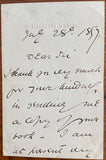 July 28th 1887
Dear Sir
Thank you very much
for your kindness
in sending me
a copy of your
book – I am
at present very